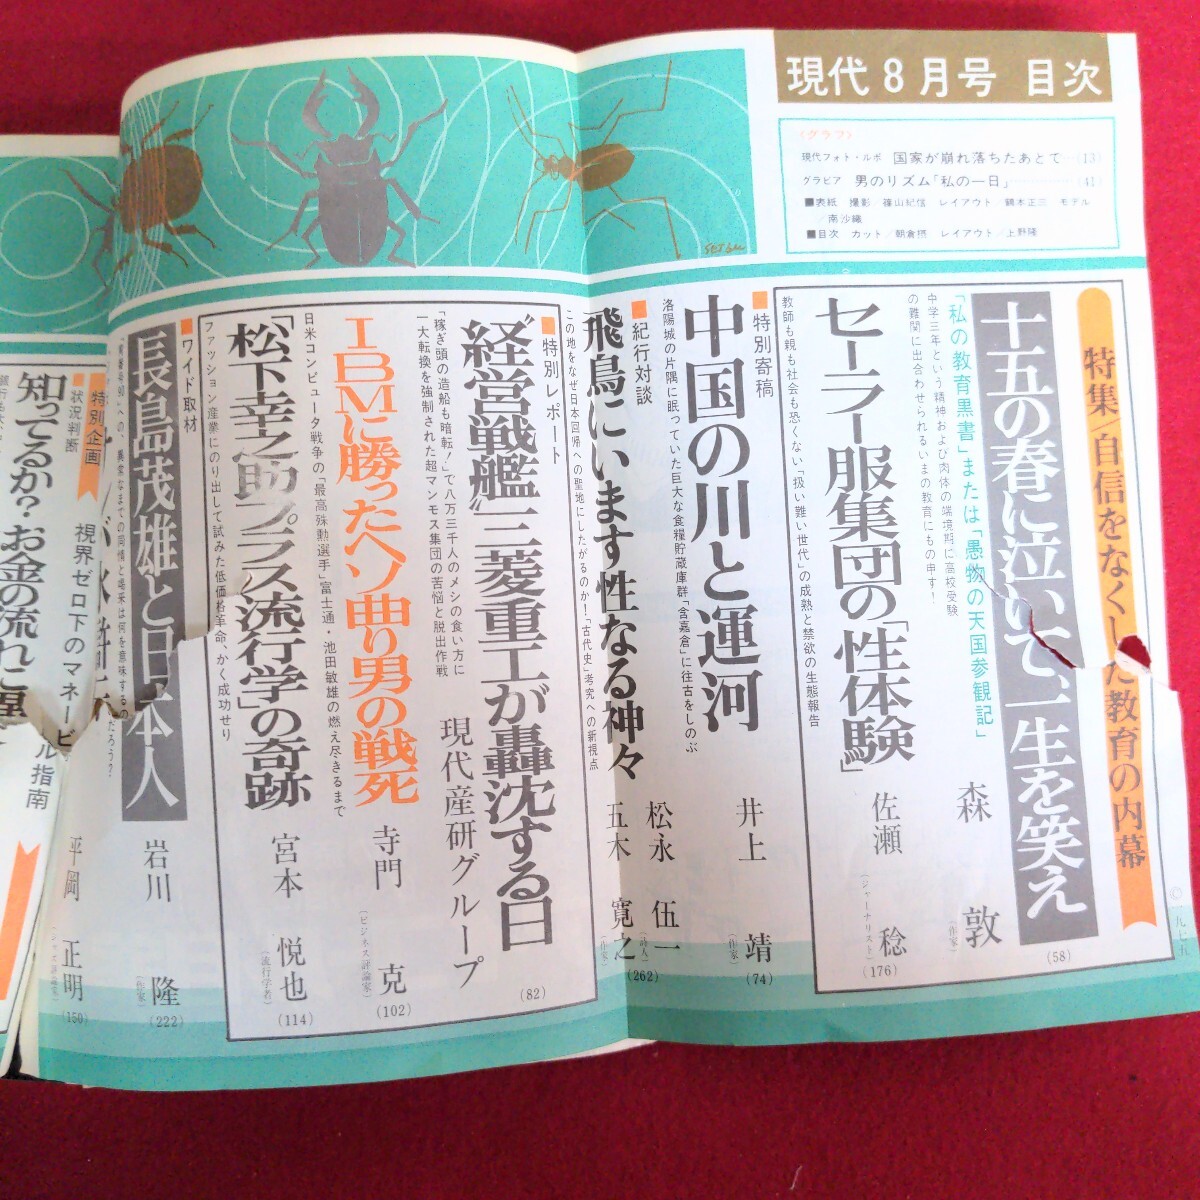 現代8月号 目次
〈グラフ〉
現代フォト・ルポ 国家が崩れ落ちたあとで…(13)
グラビア 男のリズム「私の一日」…(41)
■表紙 撮影/篠山紀信 レイアウト/鶴本正三 モデル
/南沙織
■目次 カット/朝倉摂 レイアウト/上野隆
特集/自信をなくした教育の内幕
十五の春に泣いて、一生を笑え
(58)
「私の教育黒書」または「愚物の天国参観記」
中学三年という精神および肉体の端境期に高校受験
の難関に出合わせられるいまの教育にもの申す!
森 敦
(作家)
セーラー服集団の「性体験」
教師も親も社会も恐くない「扱い難い世代」の成熟と禁欲の生態報告
佐瀬 稔
(ジャーナリスト)
(176)
■特別寄稿
中国の川と運河
洛陽城の片隅に眠っていた巨大な食糧貯蔵庫群「含嘉倉」に往古をしのぶ
井上 靖
(作家)
(74)
■紀行対談
飛鳥にいます性なる神々
この地をなぜ日本回帰への聖地にしたがるのか!「古代史」考究への新視点
松永 伍一
(詩人)
五木 寛之
(作家)
(262)
■特別レポート
“経営戦艦”三菱重工が轟沈する日
「稼ぎ頭の造船も暗転!」で八万三千人のメシの食い方に
一大転換を強制された超マンモス集団の苦悩と脱出作戦
現代産研グループ
(82)
IBMに勝ったヘソ曲り男の戦死
日米コンピュータ戦争の「最高殊勲選手」富士通・池田敏雄の燃え尽きるまで
寺門 克
(ビジネス評論家)
(102)
「松下幸之助プラス流行学」の奇跡
ファッション産業にのり出して試みた低価格革命、かく成功せり
宮本 悦也
(流行学者)
(114)
■ワイド取材
長島茂雄と日本人
岩川 隆
(作家)
(222)
特別企画
■状況判断
視界ゼロ下のマネービル指南
平岡 正明
(150)
知ってるか?お金の流れと
© 一九七五